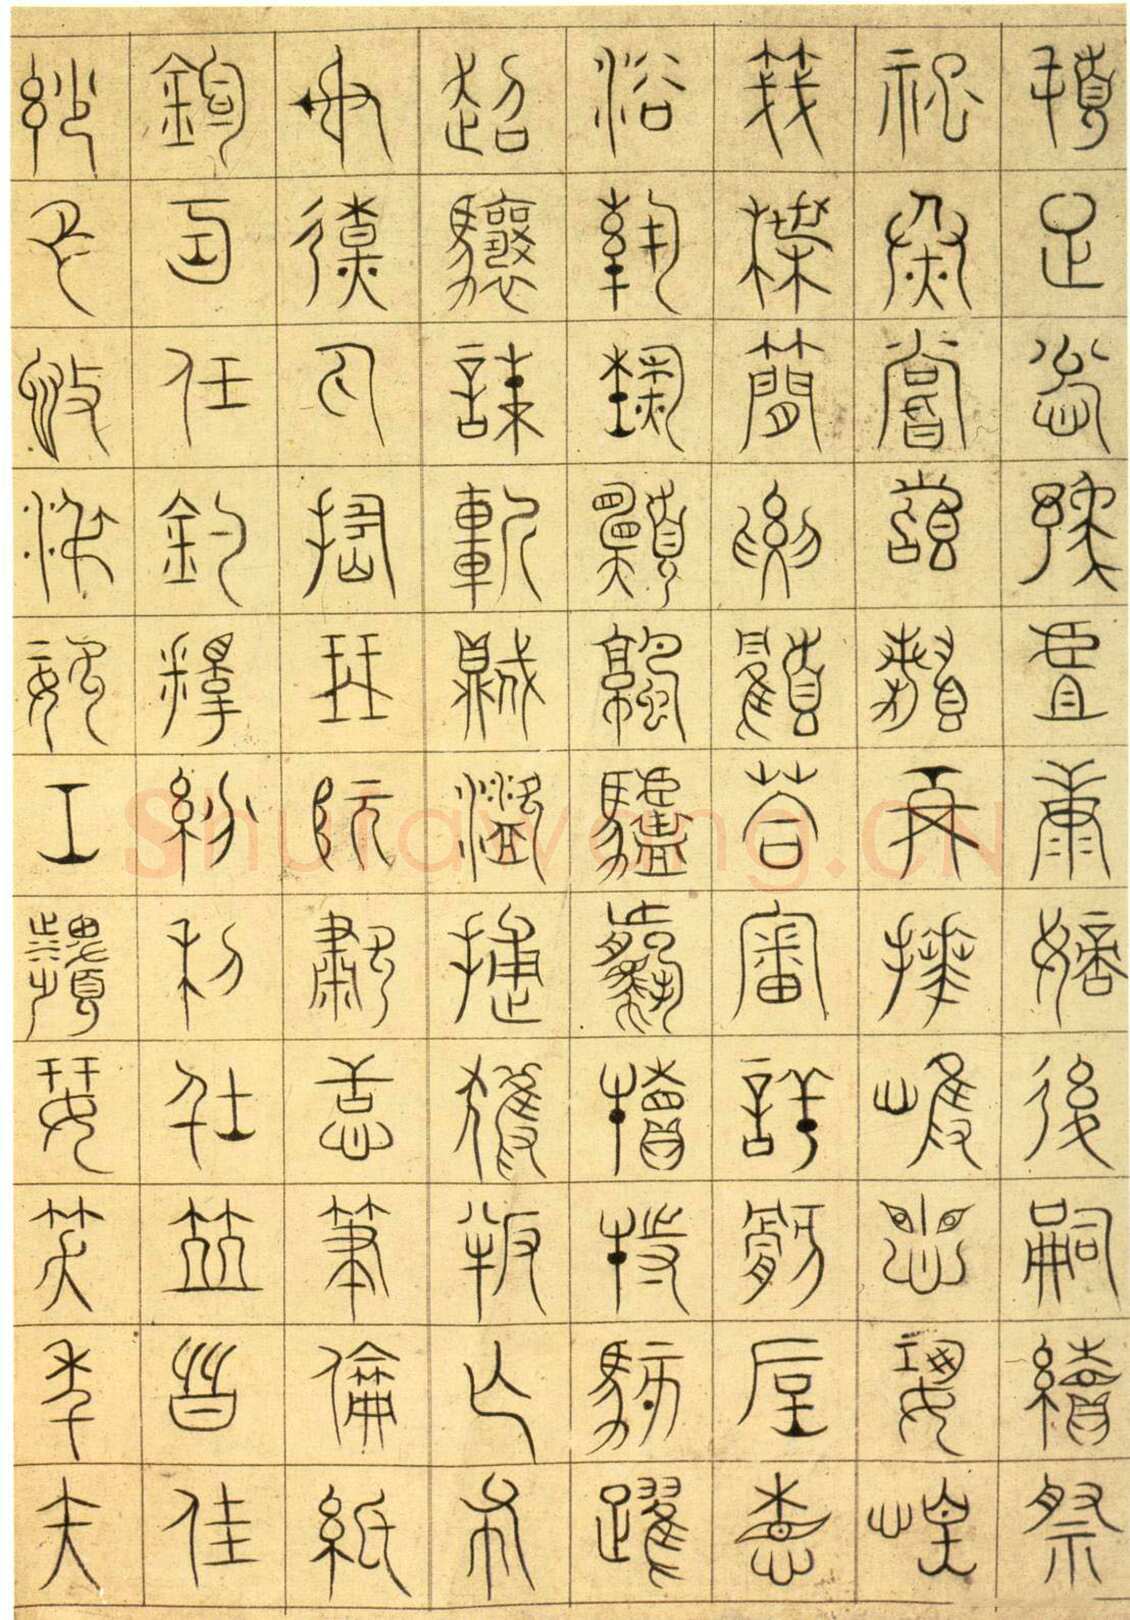 頓足悅豫且康嫡後嗣續祭
祀烝嘗稽顙再拜悚懼恐惶
牋牒簡要顧答審詳骸垢想
浴執熱願涼驢騾犢特駭躍
超驤誅斬賊盜捕獲叛亡布
射遼丸嵇琴阮嘯恬筆倫紙
鈞巧任釣釋紛利俗並皆佳
妙毛施淑姿工顰妍笑年矢
Shufawang.CN